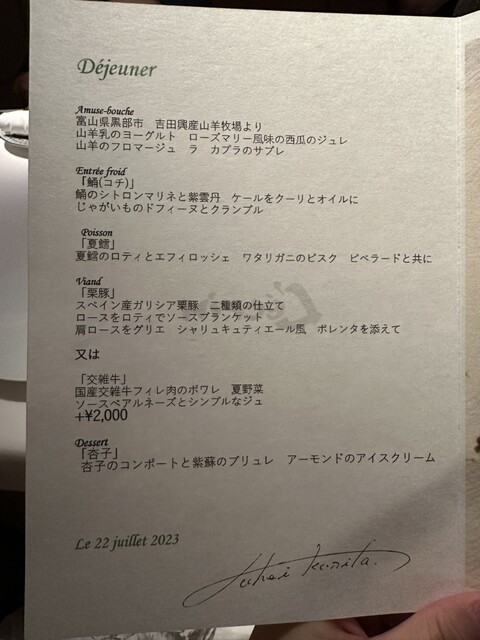 Déjeuner
Amuse-bouche
富山県黒部市　吉田興産山羊牧場より
山羊乳のヨーグルト　ローズマリー風味の西瓜のジュレ
山羊のフロマージュ　ラ　カプラのサブレ
Entrée froid
「鯒(コチ)」
鯒のシトロンマリネと紫雲丹　ケールをクーリとオイルに
じゃがいものドフィーヌとクランブル
Poisson
「夏鱈」
夏鱈のロティとエフィロッシェ　ワタリガニのビスク　ピペラードと共に
Viand
「栗豚」
スペイン産ガリシア栗豚　二種類の仕立て
ロースをロティでソースブランケット
肩ロースをグリエ　シャリュキュティエール風　ポレンタを添えて
又は
「交雑牛」
国産交雑牛フィレ肉のポワレ　夏野菜
ソースベアルネーズとシンプルなジュ
+¥2,000
Dessert
「杏子」
杏子のコンポートと紫蘇のブリュレ　アーモンドのアイスクリーム
Le 22 juillet 2023